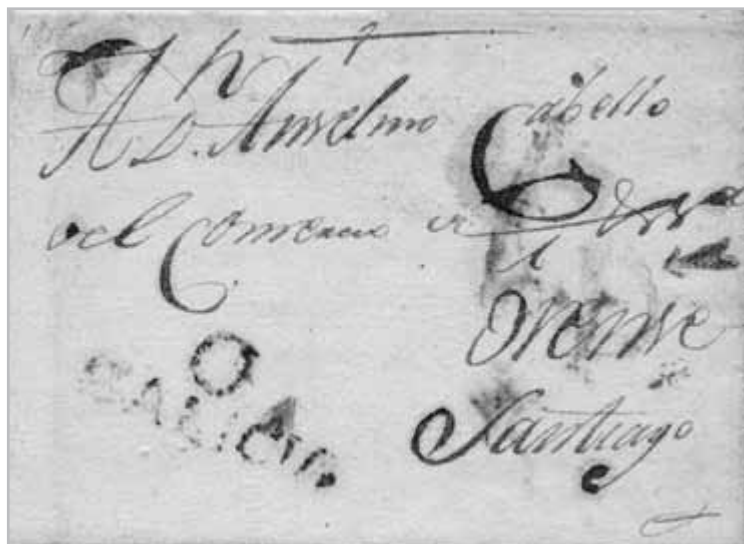 A D. Anselmo Cabello
del Comercio
Orense
Santiago
GALICIA